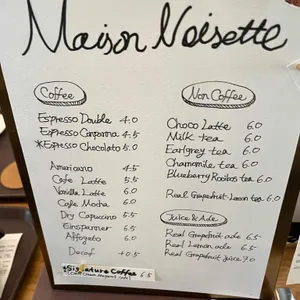 Maison Noisette
Coffee
Espresso Double 4.0
Espresso Conpanna 4.5
*Espresso Chocolato 5.0
Americano 4.5
Cafe Latte 5.5
Vanilla Latte 6.0
Cafe Mocha 6.0
Dry Capuccino 5.5
Einspanner 6.5
Affogato 6.0
Decaf +0.5
*Signature Coffee 6.5
Non Coffee
Choco Latte 6.0
Milk tea 6.0
Earlgrey tea 6.0
Chamomile tea 6.0
Blueberry Rooibos tea 6.0
Real Grapefruit Lemon tea 6.0
Juice & Ade
Real Grapefruit ade 6.5
Real Lemon ade 6.5
Real Grapefruit juice 7.0